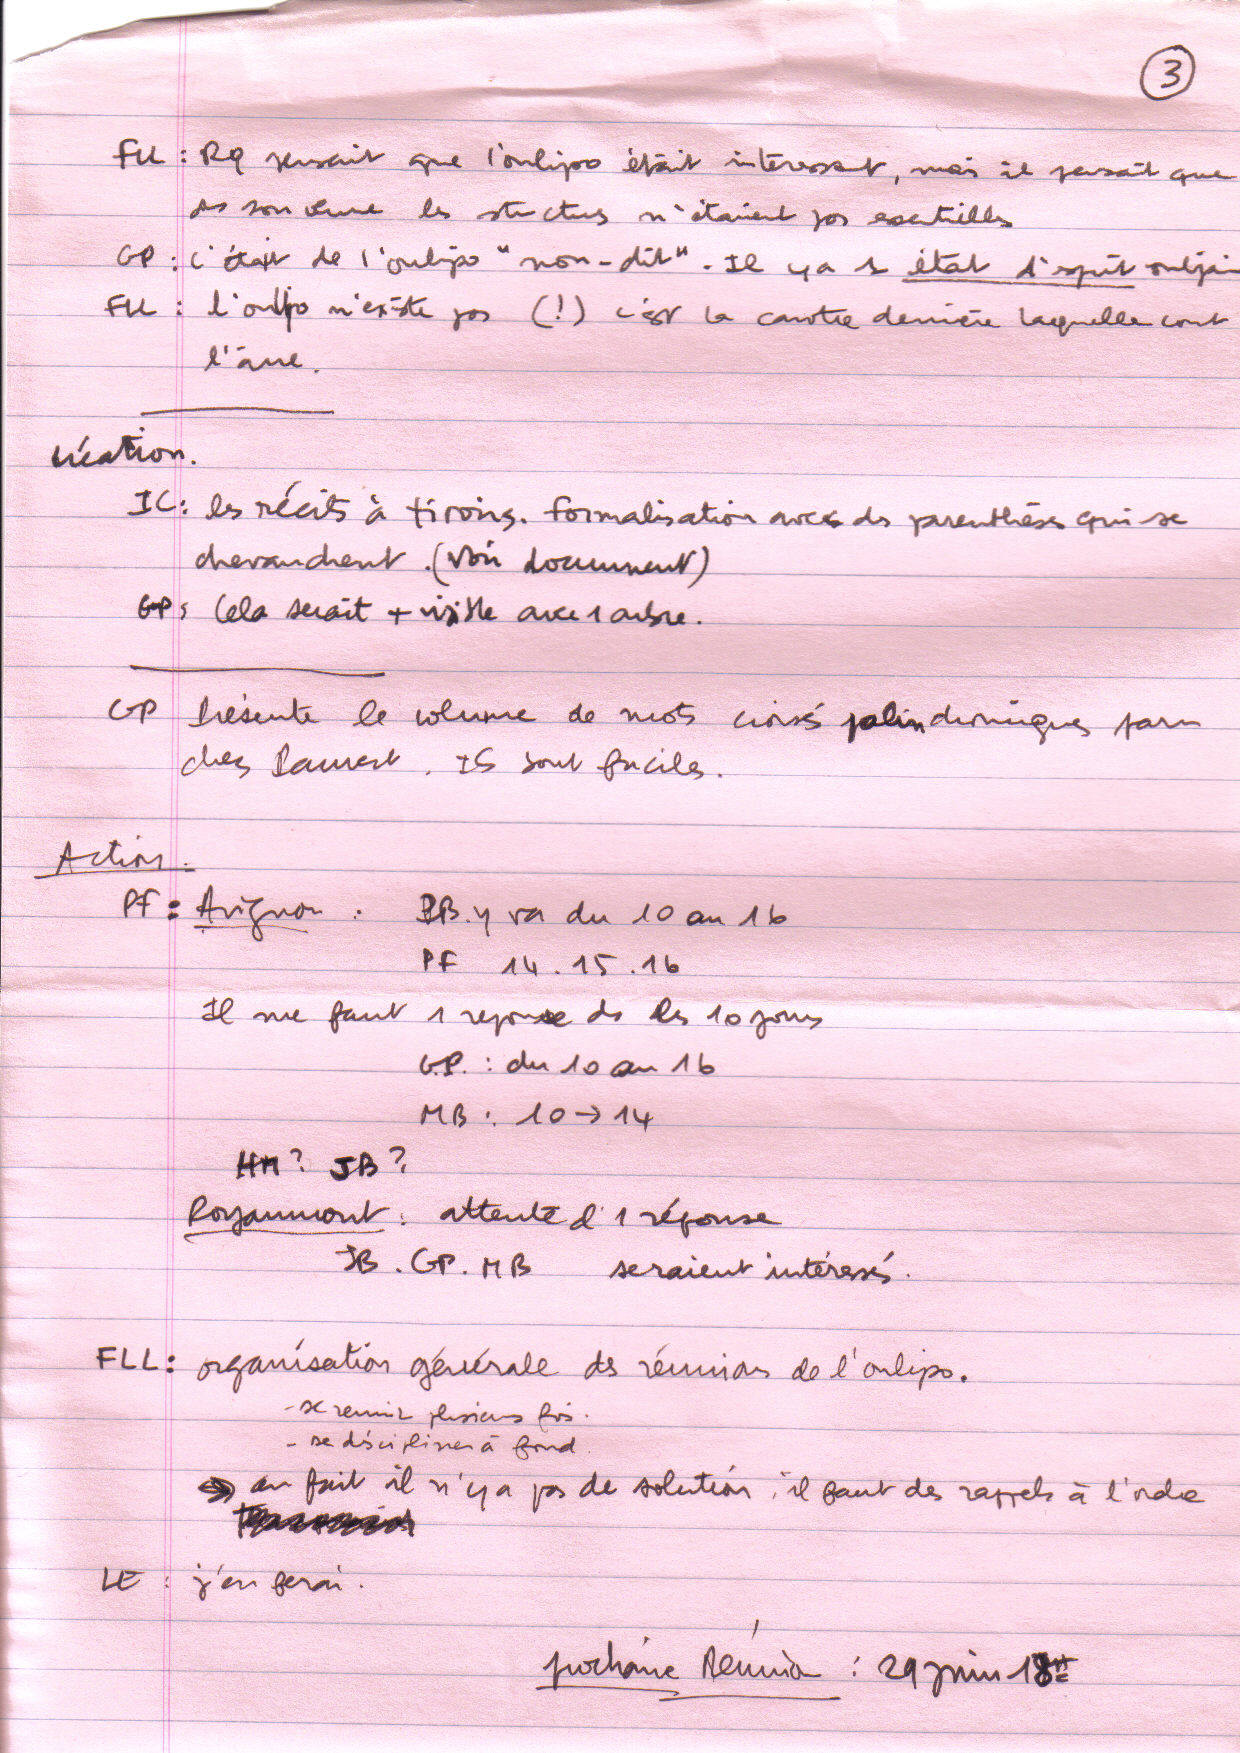 3
FLL : RQ pensait que l'oulipo était intéressant, mais il pensait que
ds son œuvre les structures n'étaient pas essentielles
GP : c'était de l'oulipo "non-dit". Il y a 1 état d'esprit oulipien
FLL : l'oulipo n'existe pas (!) c'est la carotte derrière laquelle court
l'âne.
Création.
IC : les récits à tiroirs. Formalisation avec ds parenthèses qui se
chevauchent. (voir document)
GP : Cela serait + visible avec 1 arbre.
GP Présente le volume de mots croisés palindromiques paru
chez . Ils sont faciles.
Action.
PF : Avignon : BB. y va du 10 au 16
PF 14.15.16
Il me faut 1 reponse ds les 10 jours
G.P. : du 10 au 16
MB : 10 → 14
HM ? JB ?
Royaumont : attente d'1 réponse
JB . GP . MB seraient intéressés.
FLL : organisation générale des réunions de l'oulipo.
- se reunir plusieurs fois.
- se discipliner à fond.
→ en fait il n'y a pas de solution. il faut des rappels à l'ordre
LE : j'en ferai.
prochaine Réunion : 29 juin 18H